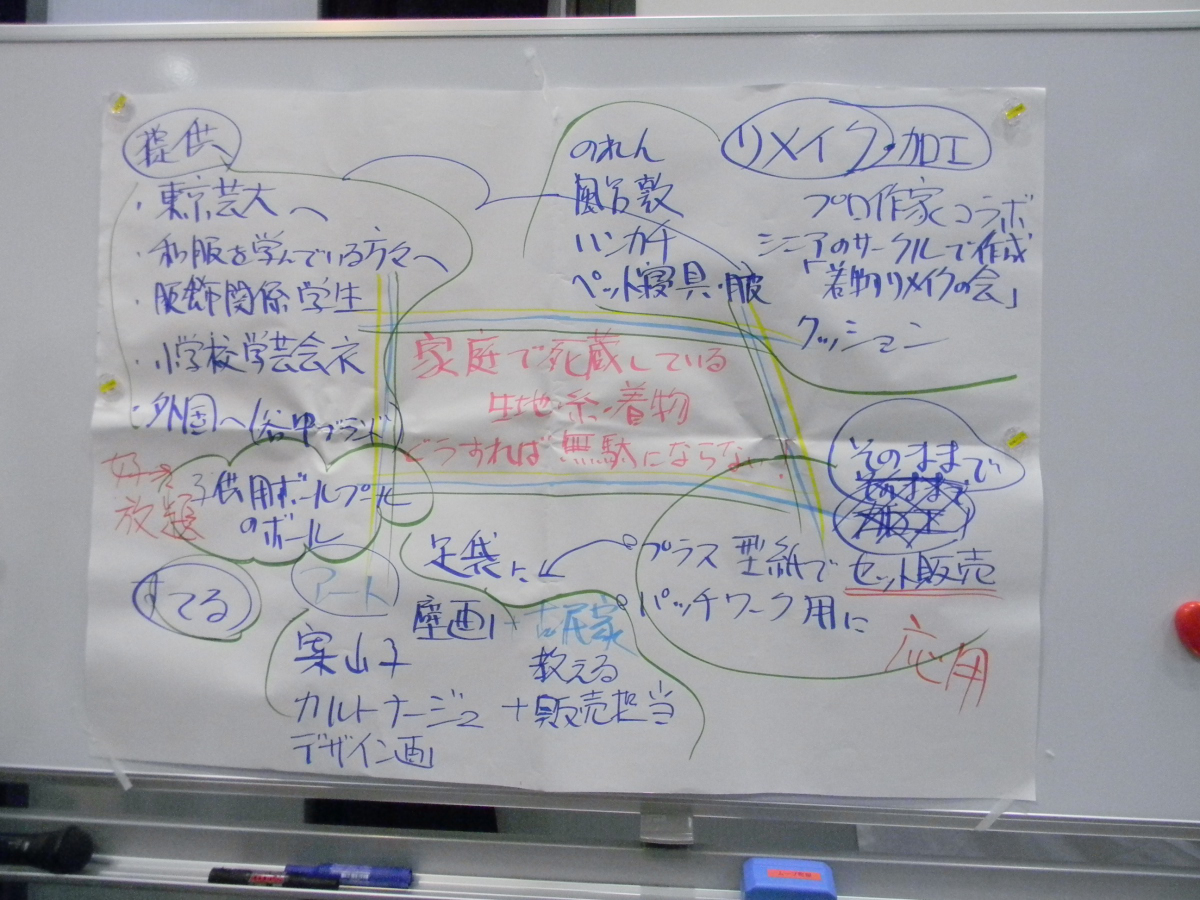 提供
・東京芸大へ
・和服を学んでいる方々へ
・服飾関係学生
・小学校学芸会衣
・外国へ/谷中ブランド
好き放題
子供用ボールプール
のボール
すてる
のれん
風呂敷
ハンカチ
ペット寝具・服
リメイク・加工
プロ作家コラボ
シニアのサークルで作成
「着物リメイクの会」
クッション
家庭で死蔵している
生地・糸・着物
どうすれば無駄にならない!
そのままで
プラス型紙でセット販売
パッチワーク用に
応用
足袋に
アート
壁画 + 古民家
案山子
教える
カルトナージュ +販売担当
デザイン画